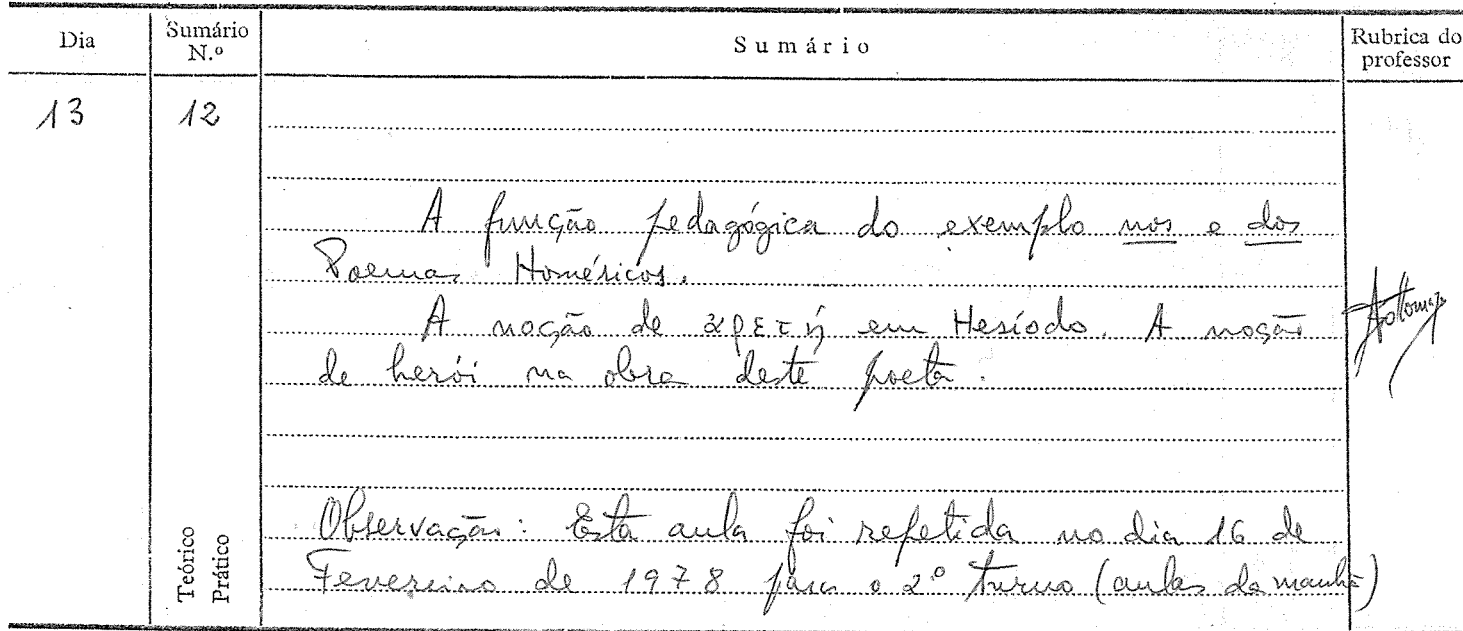 Dia
Sumário
N.º
Sumário
Rubrica do
professor
13
12
A função pedagógica do exemplo nos e dos
Poemas Homéricos.
A noção de αρετή em Hesíodo. A noção
de herói na obra deste poeta.
Teórico
Prático
Observação: Esta aula foi repetida no dia 16 de
Fevereiro de 1978 para o 2º turno (aulas da manhã)